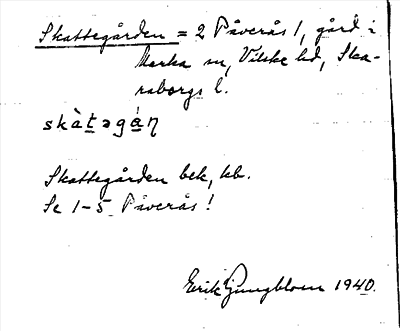 Skattegården = 2 Påverås 1, gård i
Marka sn, Vilske hd, Ska-
raborgs l.
skàt̲əgá̲ꞃ
Skattegården bek, kb.
Se 1-5 Påverås!
Erik Ljungblom 1940.